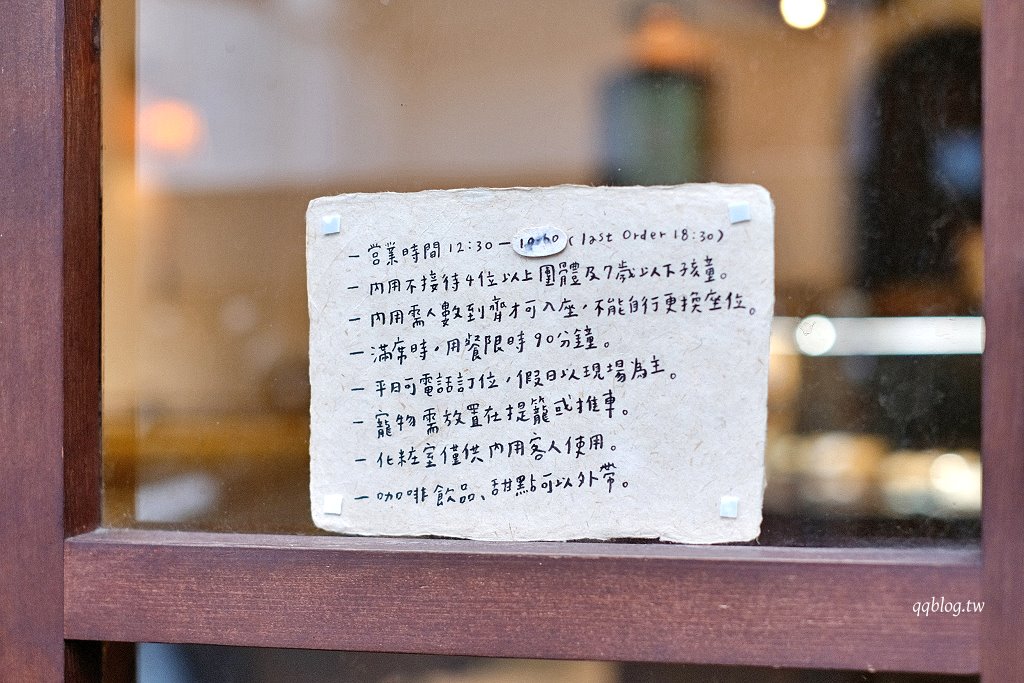 – 營業時間 12:30 – 19:00 (last order 18:30)
– 內用不接待4位以上團體及7歲以下孩童。
– 內用需人數到齊才可入座，不能自行更換座位。
– 滿席時，用餐限時90分鐘。
– 平日可電話訂位，假日以現場為主。
– 寵物需放置在提籠或推車。
– 化粧室僅供內用客人使用。
– 咖啡飲品、甜點可以外帶。
qqblog.tw